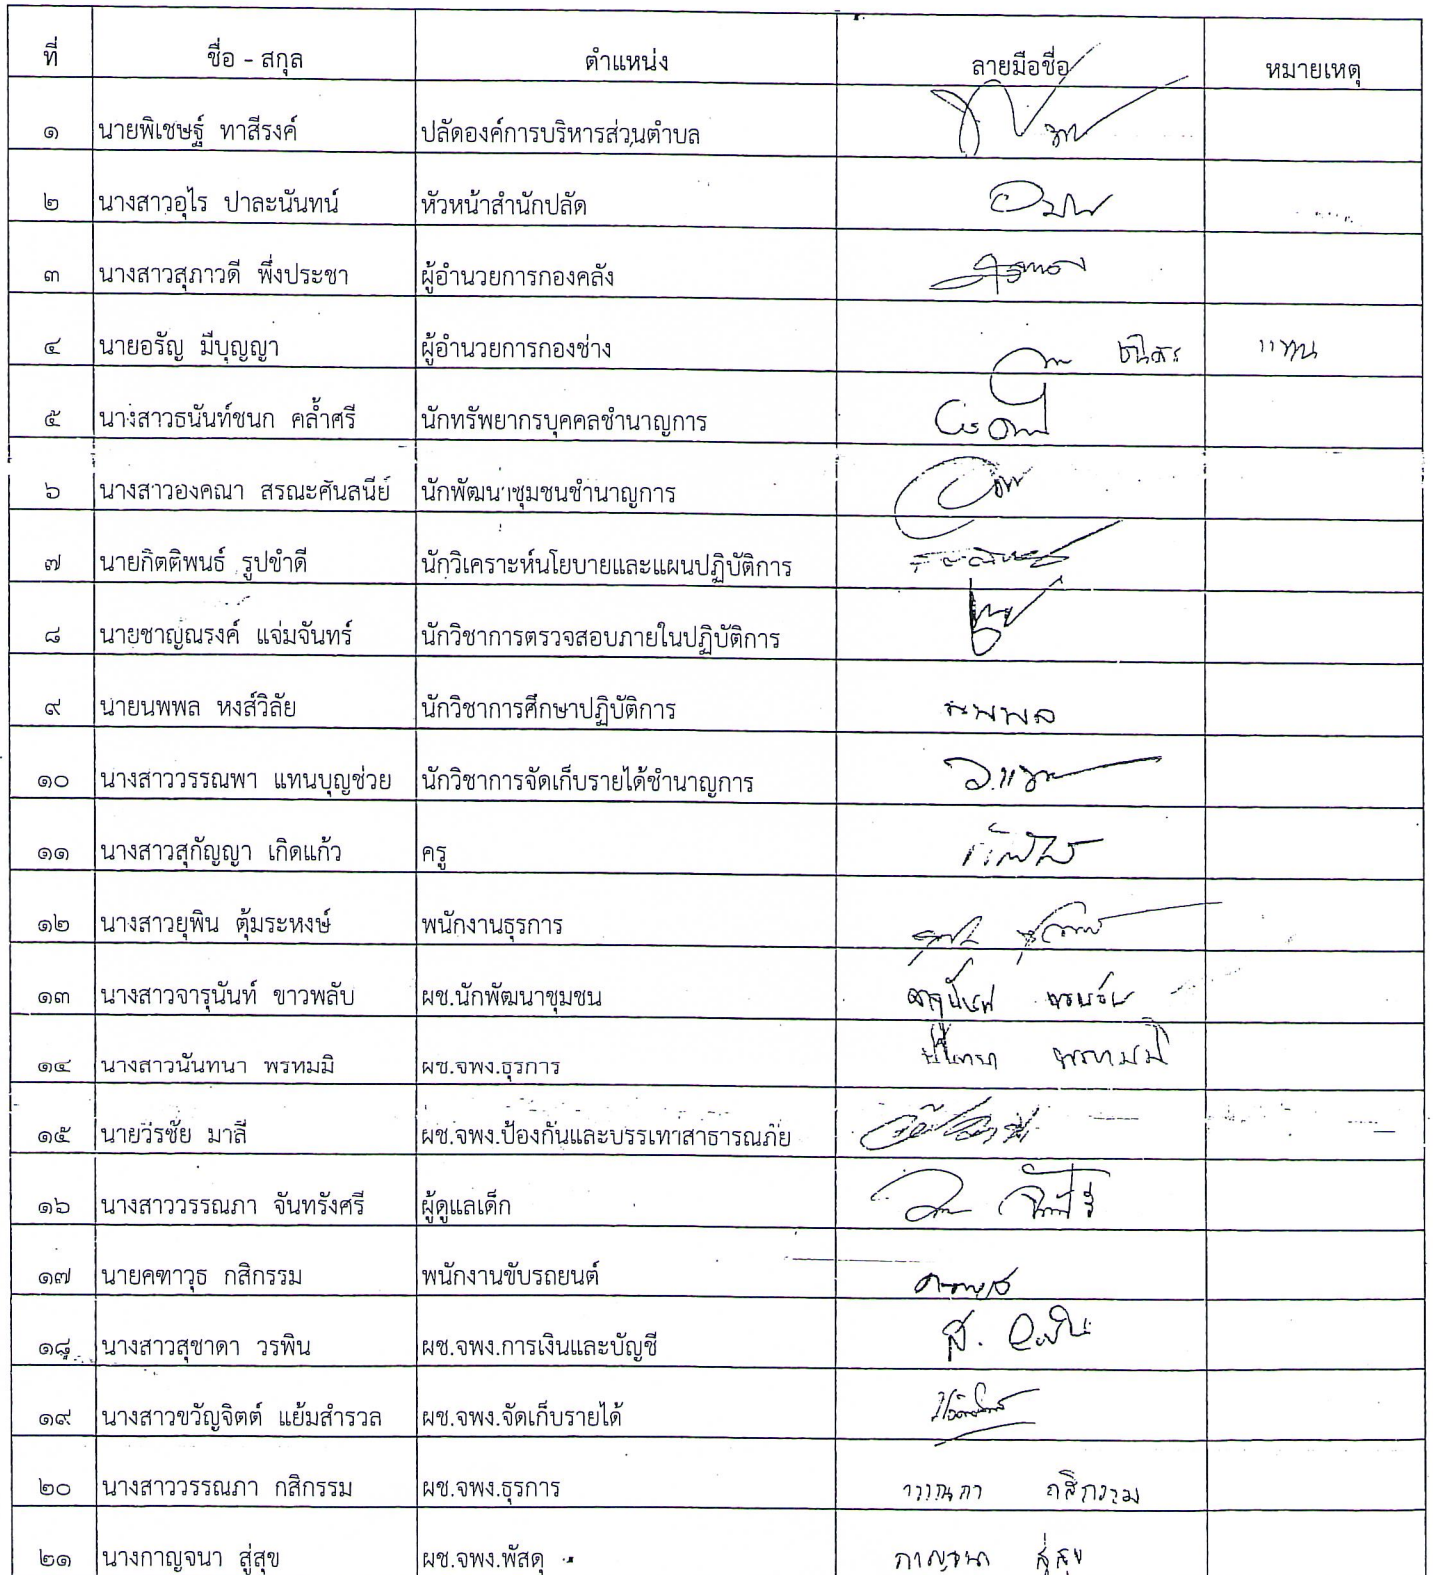 ที่ ชื่อ - สกุล ตำแหน่ง ลายมือชื่อ หมายเหตุ
๑ นายพิเชษฐ์ ทาสีรงค์ ปลัดองค์การบริหารส่วนตำบล
๒ นางสาวอุไร ปาละนันทน์ หัวหน้าสำนักปลัด
๓ นางสาวสุภาวดี พึ่งประชา ผู้อำนวยการกองคลัง
๔ นายอรัญ มีบุญญา ผู้อำนวยการกองช่าง แทน
๕ นางสาวธนันท์ชนก คล้ำศรี นักทรัพยากรบุคคลชำนาญการ
๖ นางสาวองคณา สรณะศันสนีย์ นักพัฒนาชุมชนชำนาญการ
๗ นายกิตติพนธ์ รูปขำดี นักวิเคราะห์นโยบายและแผนปฏิบัติการ
๘ นายชาญณรงค์ แจ่มจันทร์ นักวิชาการตรวจสอบภายในปฏิบัติการ
๙ นายนพพล หงส์วิลัย นักวิชาการศึกษาปฏิบัติการ นพพล
๑๐ นางสาววรรณพา แทนบุญช่วย นักวิชาการจัดเก็บรายได้ชำนาญการ
๑๑ นางสาวสุกัญญา เกิดแก้ว ครู
๑๒ นางสาวยุพิน ตุ้มระหงษ์ พนักงานธุรการ
๑๓ นางสาวจารุนันท์ ขาวพลับ ผช.นักพัฒนาชุมชน จารุนันท์ ขาวพลับ
๑๔ นางสาวนันทนา พรหมมิ ผช.จพง.ธุรการ นันทนา พรหมมิ
๑๕ นายวีรชัย มาลี ผช.จพง.ป้องกันและบรรเทาสาธารณภัย
๑๖ นางสาววรรณภา จันทรังศรี ผู้ดูแลเด็ก
๑๗ นายคฑาวุธ กสิกรรม พนักงานขับรถยนต์ คฑาวุธ
๑๘ นางสาวสุชาดา วรพิน ผช.จพง.การเงินและบัญชี
๑๙ นางสาวขวัญจิตต์ แย้มสำรวล ผช.จพง.จัดเก็บรายได้
๒๐ นางสาววรรณภา กสิกรรม ผช.จพง.ธุรการ วรรณภา กสิกรรม
๒๑ นางกาญจนา สู่สุข ผช.จพง.พัสดุ กาญจนา สู่สุข